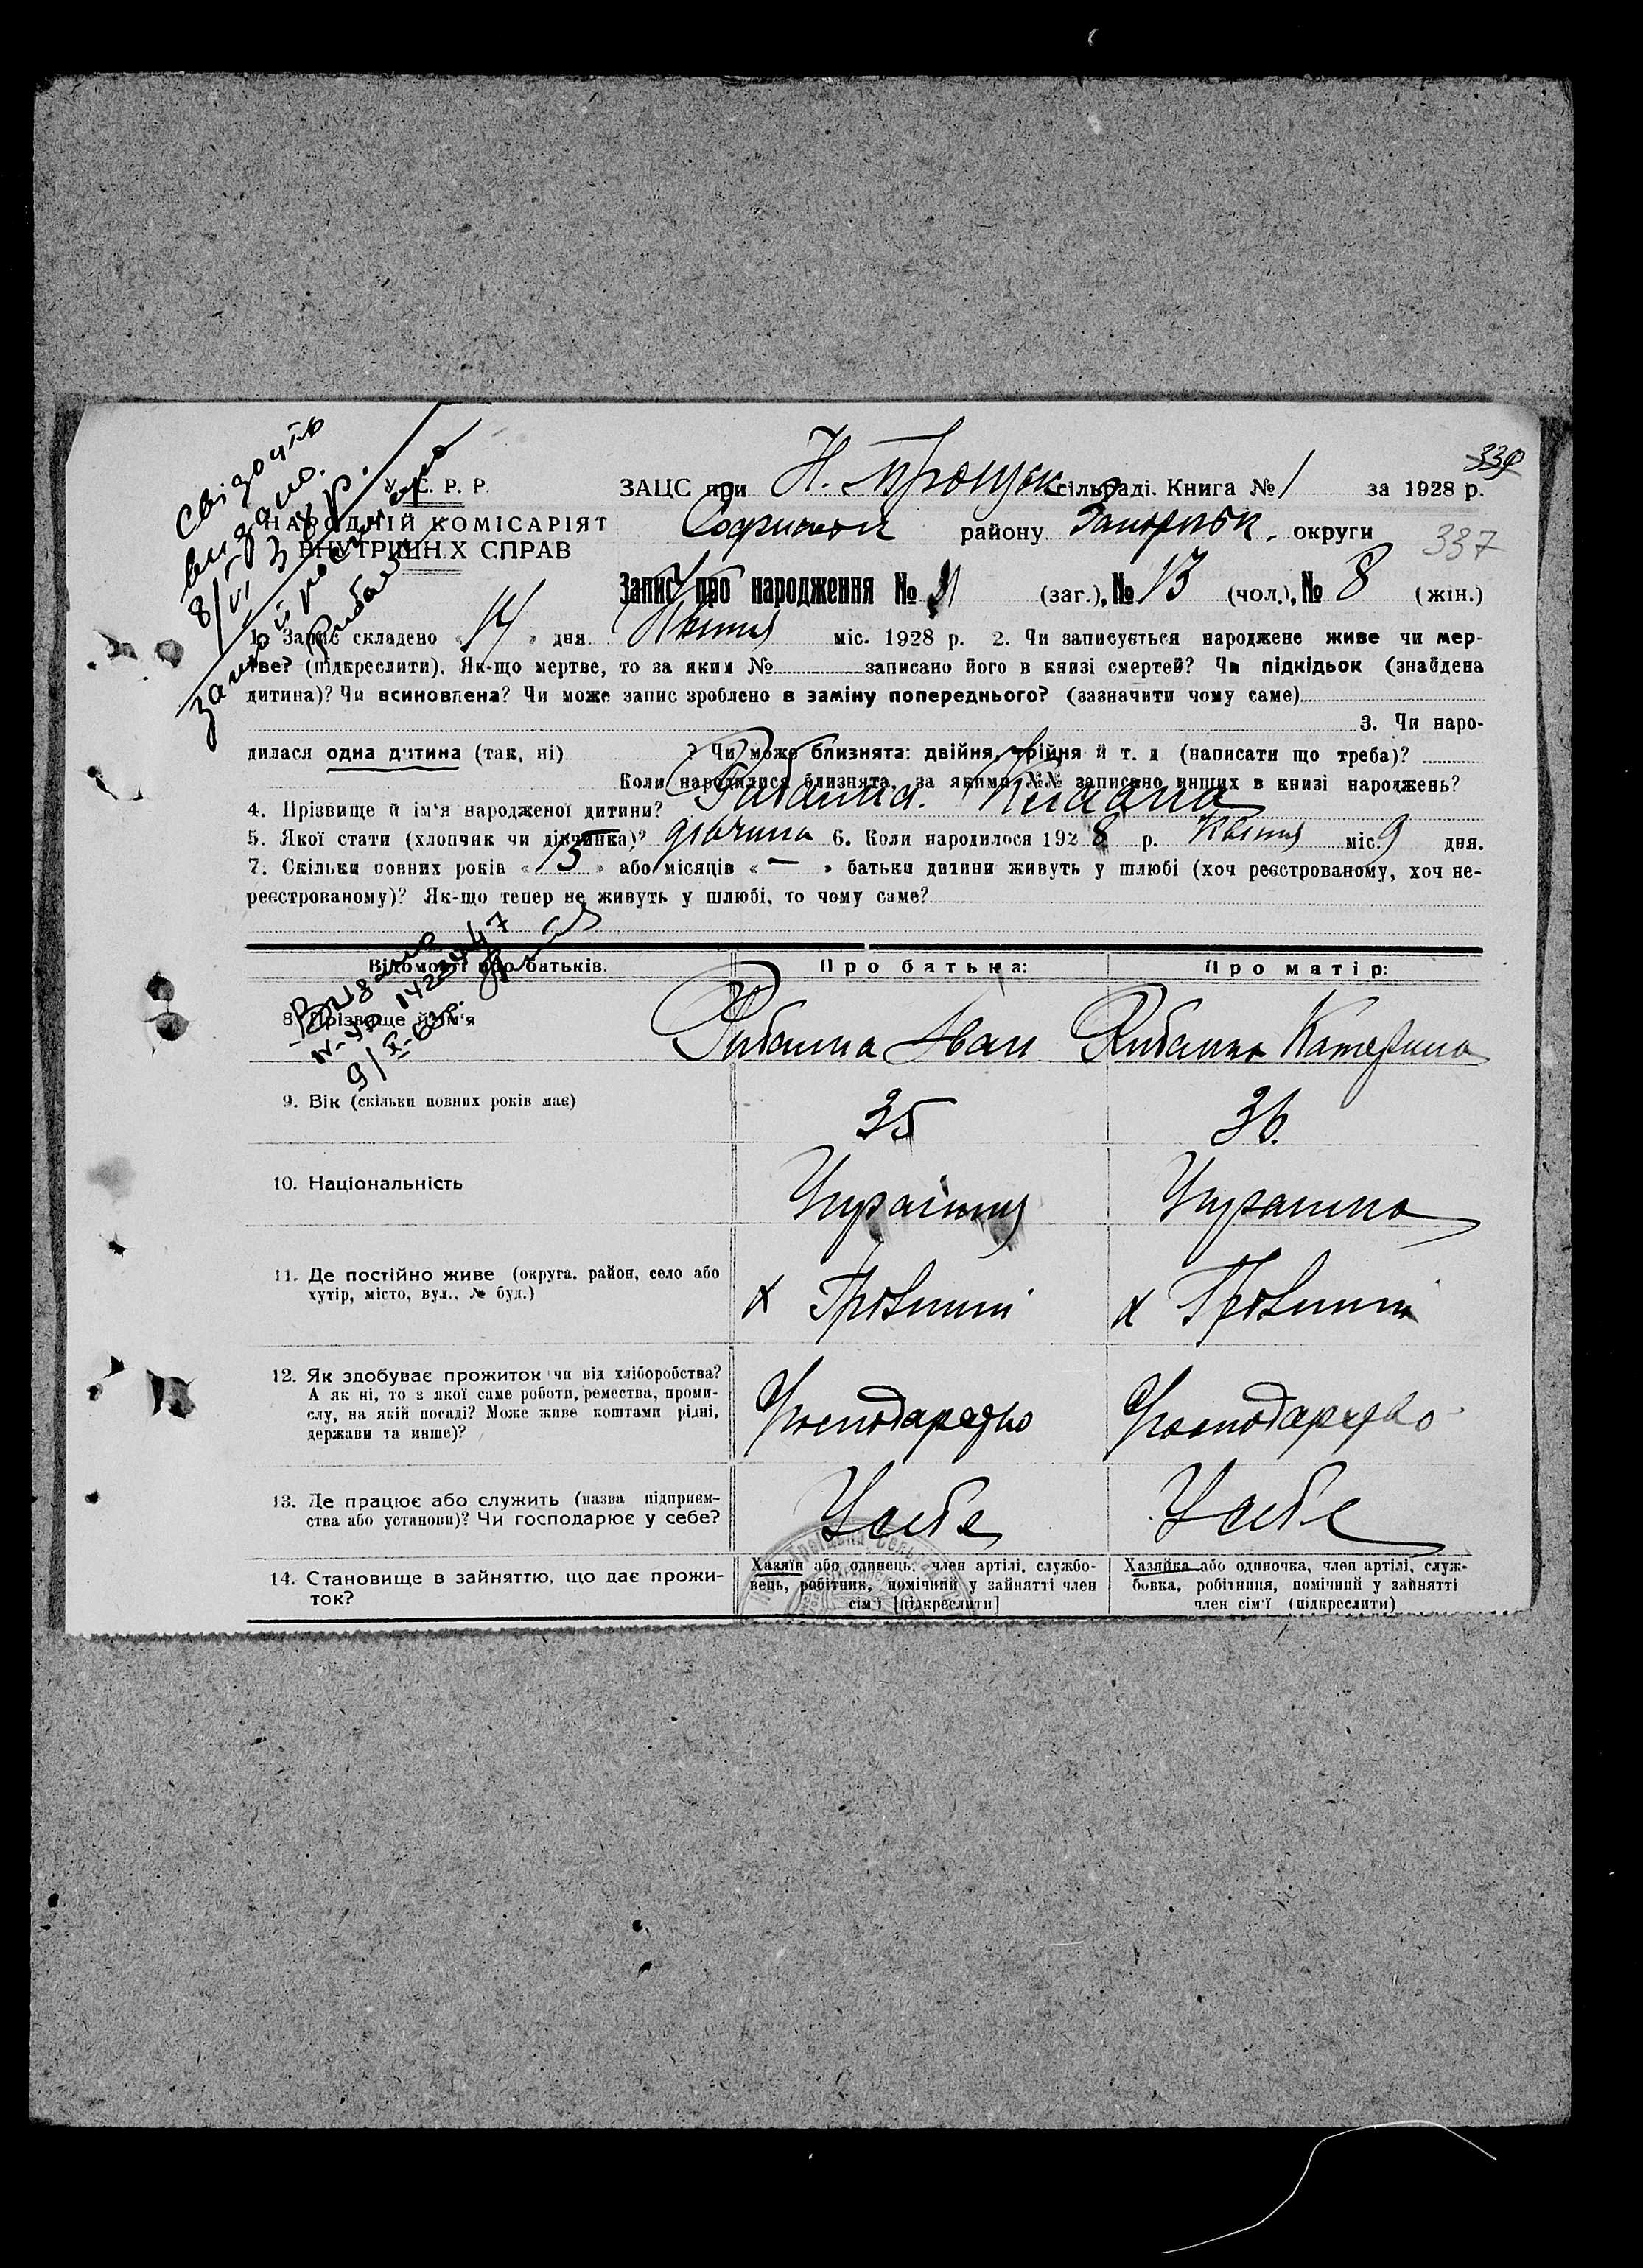 339
337
свідоцтво
видано.
8/VI 38 р.
У. С. Р. Р.
НАРОДНІЙ КОМІСАРІЯТ
ВНУТРІШН.Х СПРАВ
ЗАЦС при Н. Троцьк сільраді. Книга № 1 за 1928 р.
району округи
Запис про народження № (заг.), № 13 (чол.), № 8 (жін.)
1. Запис складено « 14 » дня Квітня міс. 1928 р. 2. Чи записується народжене живе чи мер-
тве? (підкреслити). Як-що мертве, то за яким № записано його в книзі смертей? Чи підкідьок (знайдена
дитина)? Чи всиновлена? Чи може запис зроблено в заміну попереднього? (зазначити чому саме)
3. Чи наро-
дилася одна дитина (так, ні) ? Чи може близнята: двійня, трійня й т. д (написати що треба)?
Коли народилися близнята, за якими №№ записано инших в книзі народжень?
4. Прізвище й ім'я народженої дитини?
5. Якої стати (хлопчик чи дівчинка)? дівчина 6. Коли народилося 1928 р. Квітня міс. 9 дня.
7. Скільки повних років « 15 » або місяців « — » батьки дитини живуть у шлюбі (хоч реєстрованому, хоч не-
реєстрованому)? Як-що тепер не живуть у шлюбі, то чому саме?
Відомості про батьків. Про батька: Про матір:
8. Прізвище й ім'я Рибалка Іван Рибалка Катерина
9. Вік (скільки повних років має) 35 36.
10. Національність Україниц Украинка
11. Де постійно живе (округа, район, село або
хутір, місто, вул., № буд.)
12. Як здобуває прожиток чи від хліборобства?
А як ні, то з якої саме роботи, ремества, проми-
слу, на якій посаді? Може живе коштами рідні,
держави та инше)?
13. Де працює або служить (назва підприєм-
ства або установи)? Чи господарює у себе? У себе У себе
14. Становище в зайняттю, що дає прожи-
ток?
Хазяїн або одинець, член артілі, службо-
вець, робітник, помічний у зайнятті член
сім'ї [підкреслити]
Хазяйка або одиночка, член артілі, служ-
бовка, робітниця, помічний у зайнятті
член сім'ї (підкреслити)